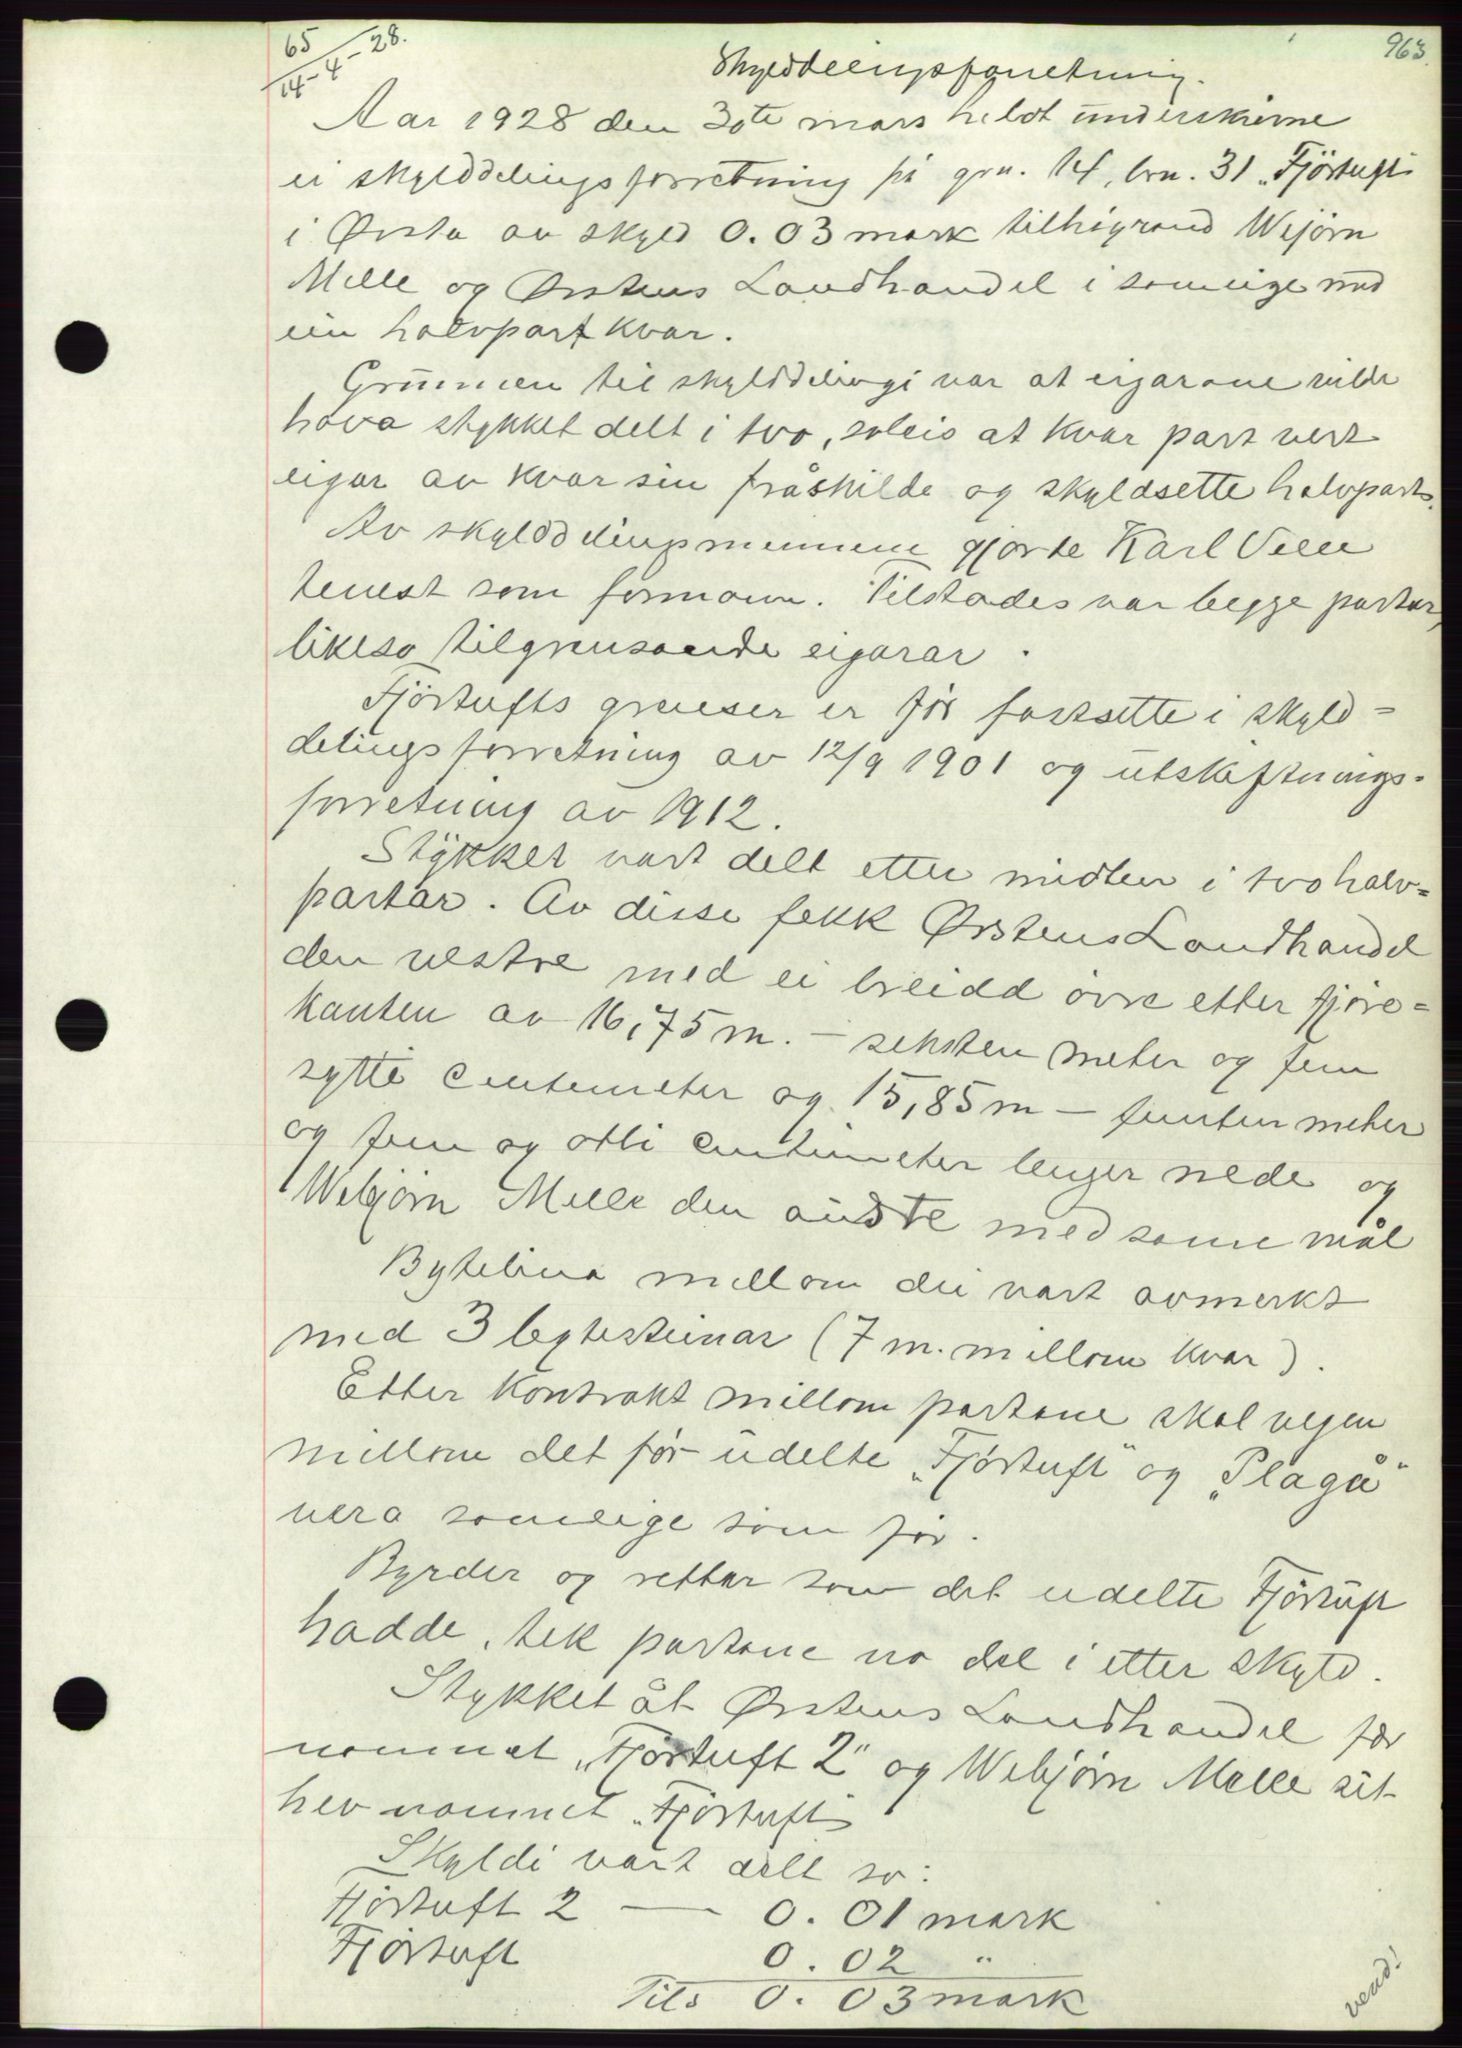 65
14-4-28.
963.
Skylddelingsforretning.
Aar 1928 den 30te mars heldt underskrivne
ei skylddelingsforretning på grn. 14, brn. 31 „Fjörtuft"
i Ørsta av skyld 0.03 mark tilhøyrand Webjörn
Melle og Ørstens Landhandel i sameige med
ein halvpart kvar.
Grunnen til skylddelingi var at eigarane vilde
hava stykket delt i tvo, soleis at kvar part vert
eigar av kvar sin fråskilde og skyldsette halvpart.
Av skylddelingsmennene gjorde Karl Velle
tenest som formann. Tilstades var begge partar,
likeso tilgrensande eigarar.
Fjörtufts grenser er før fastsette i skyld=
delingsforretning av 12/9 1901 og utskiftnings-
forretning av 1912.
Stykket vart delt etter midten i tvo halv=
partar. Av disse fekk Ørstens Landhandel
den vestre med ei breidd øvre etter fjøre=
kanten av 16,75 m. – seksten meter og fem
sytti centemeter og 15,85 m – femten meter
og fem og otti centimeter lenger nede og
Webjörn Melle den austre med same mål
Bytelina millom dei vart avmerkt
med 3 bytesteinar (7 m. millom kvar).
Etter kontrakt millom partane skal vegen
millom det før udelte „Fjørtuft" og „Plagå"
vera sameige som før.
Byrder og rettar som det udelte Fjörtuft
hadde, tek partane no del i etter skyld.
Stykket åt Ørstens Landhandel fær
nammnet „Fjörtuft 2" og Webjörn Melle sit
hev nammnet „Fjörtuft"
Skyldi vart delt so:
Fjörtuft 2 — 0.01 mark
Fjörtuft 0.02 "
Tils 0.03 mark
vend!